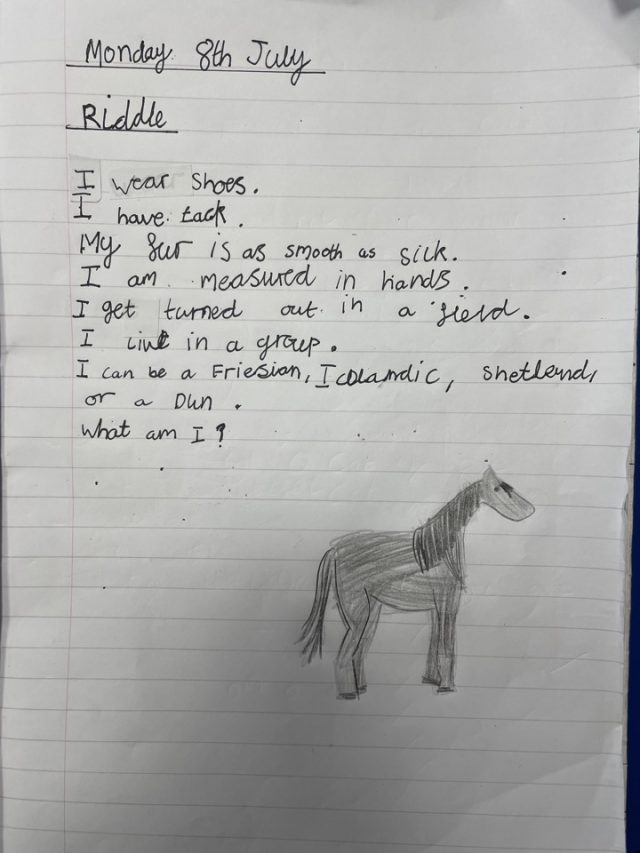 Monday 8th July
Riddle
I wear shoes.
I have tack.
My fur is as smooth as silk.
I am measured in hands.
I get turned out in a field.
I live in a group.
I can be a Friesian, Icolandic, Shetland,
or a Dun.
What am I?